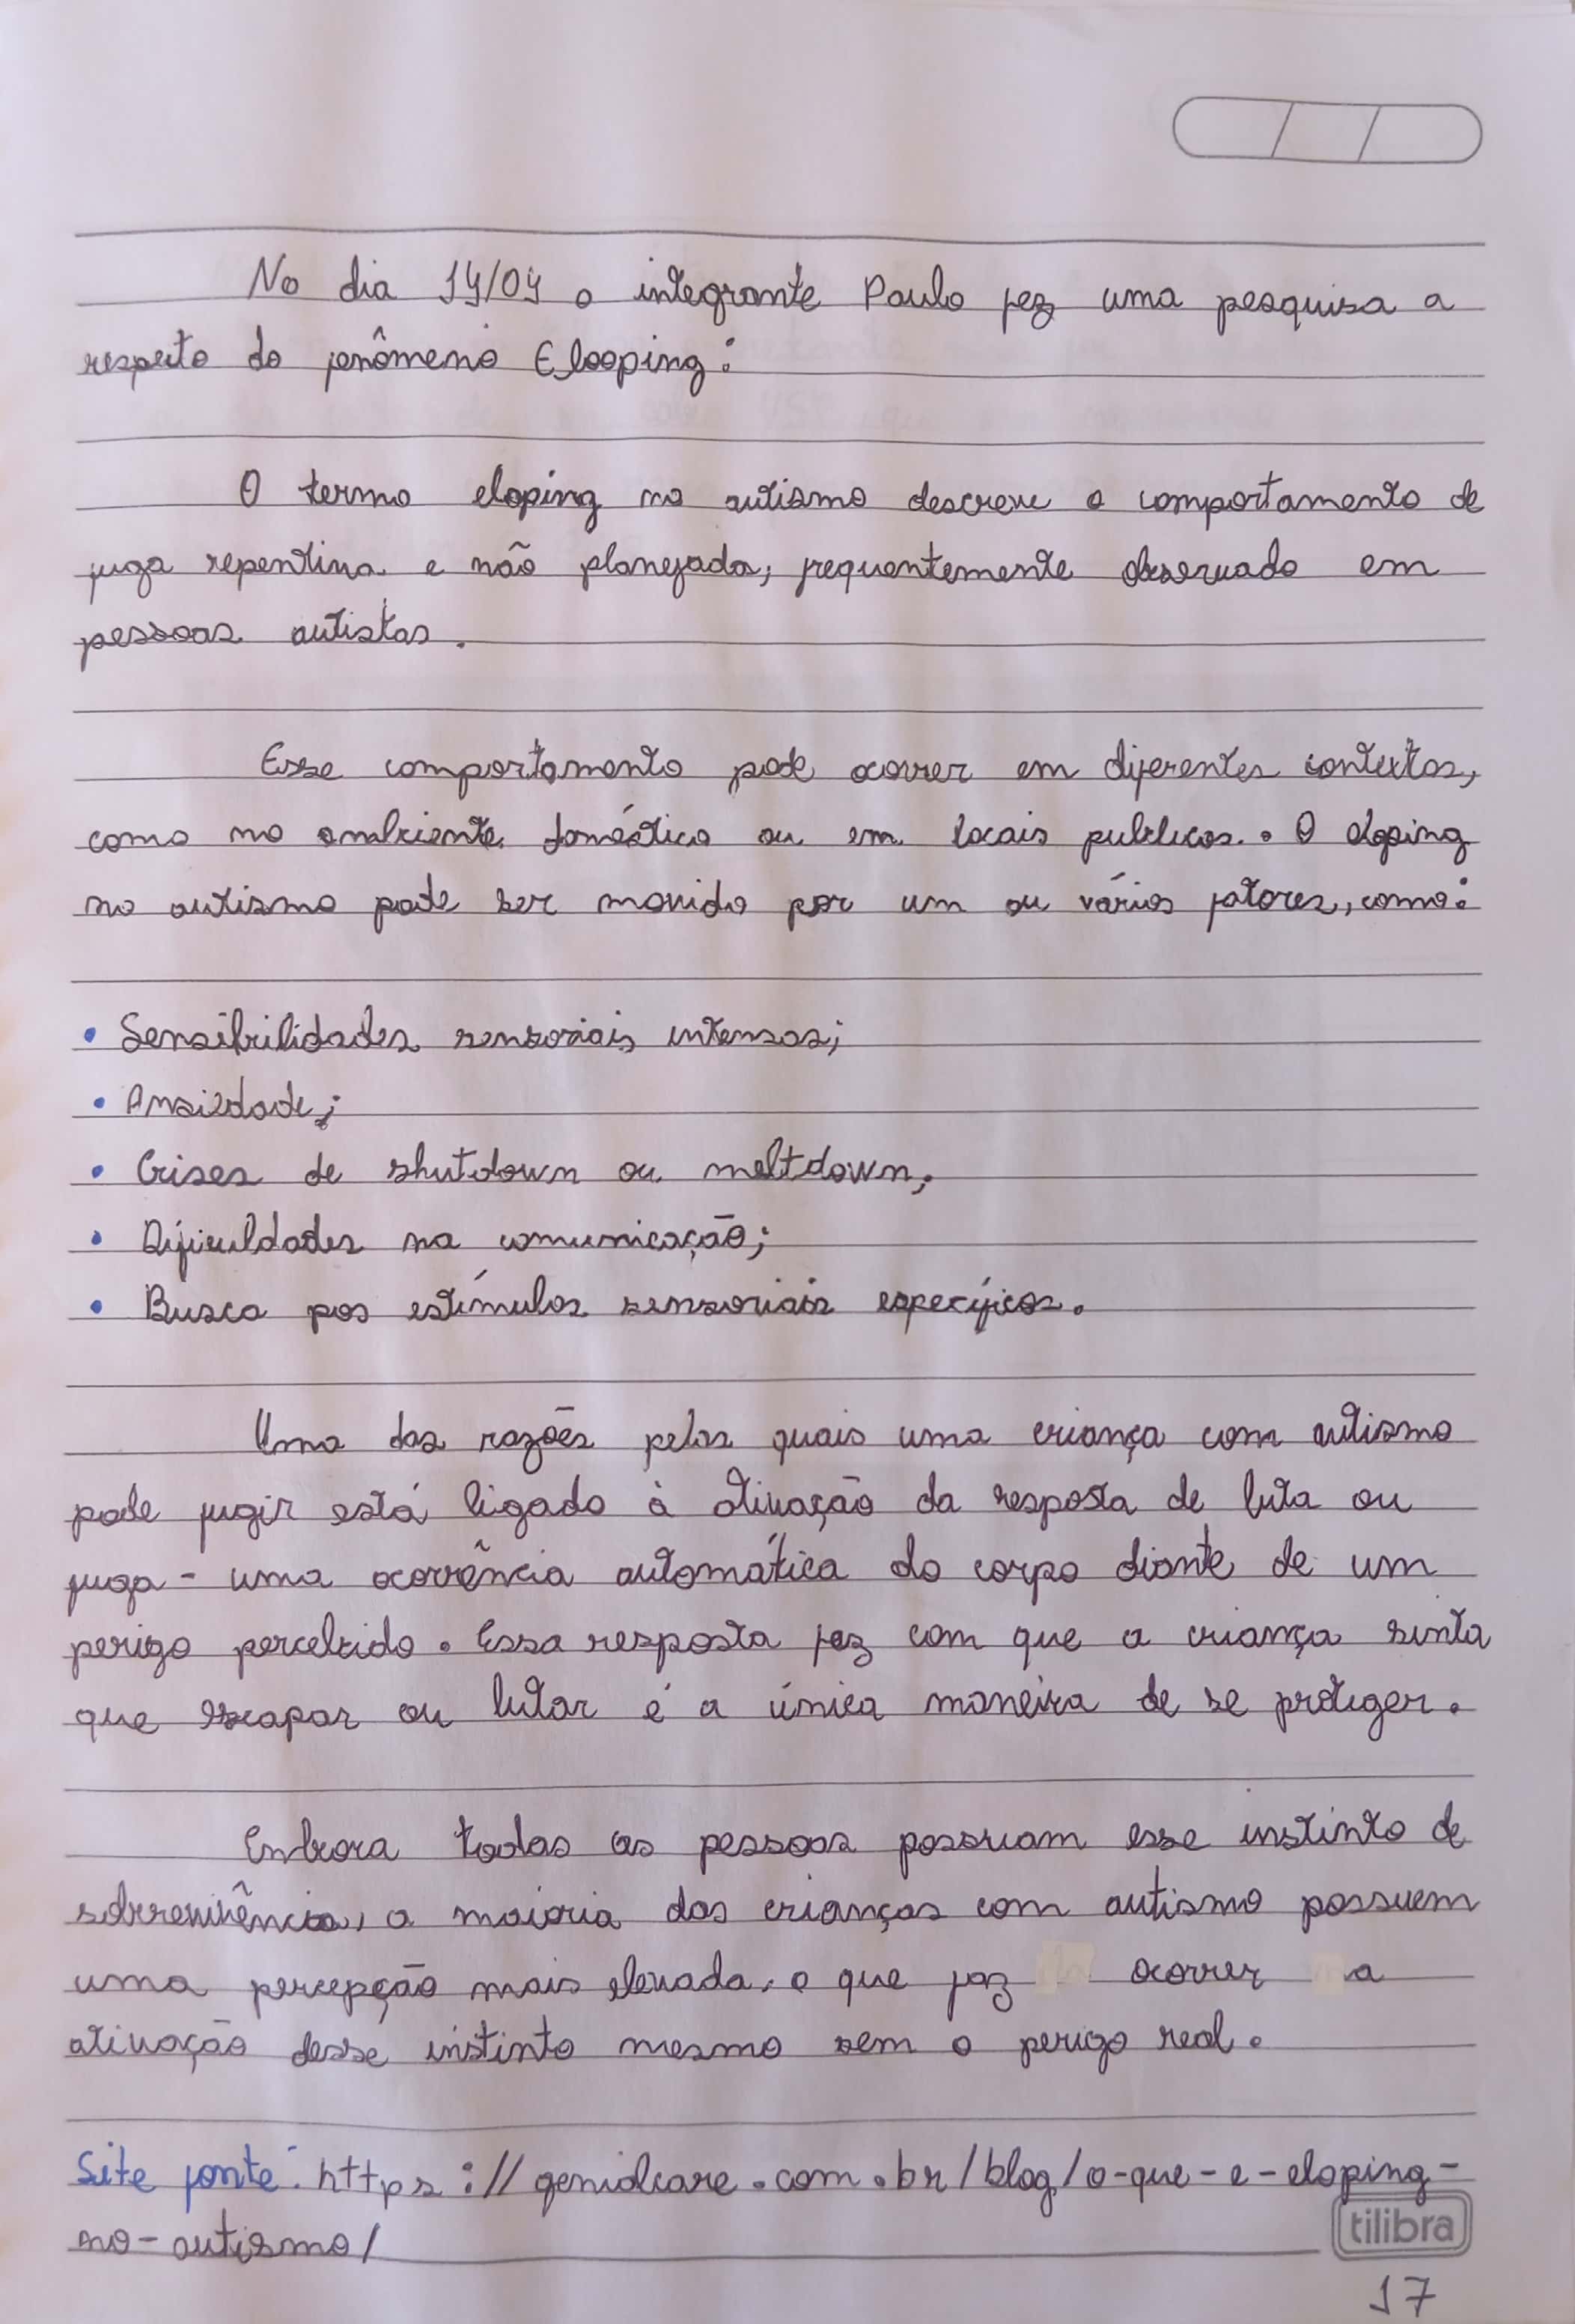 No dia 14/04 o integrante Paulo fez uma pesquisa a
respeito do fenômeno Elooping:
O termo eloping no autismo descreve o comportamento de
fuga repentina e não planejada, frequentemente observado em
pessoas autistas.
Esse comportamento pode ocorrer em diferentes contextos,
como no ambiente doméstico ou em locais publicos. O eloping
no autismo pode ser movido por um ou vários fatores, como:
• Sensibilidades sensoriais intensas;
• Ansiedade;
• Crises de shutdown ou meltdown;
• Dificuldades na comunicação;
• Busca pos estímulos sensoriais específicos.
Uma das razões pelas quais uma criança com autismo
pode fugir está ligado à ativação da resposta de luta ou
fuga - uma ocorrência automática do corpo diante de um
perigo percebido. Essa resposta fez com que a criança sinta
que escapar ou lutar é a única maneira de se proteger.
Embora todas as pessoas possuam esse instinto de
sobrevivência, a maioria das crianças com autismo possuem
uma percepção mais elevada, o que faz ocorrer a
ativação desse instinto mesmo sem o perigo real.
Site fonte: https://genialcare.com.br/blog/o-que-e-eloping-
no-autismo/
tilibra
17